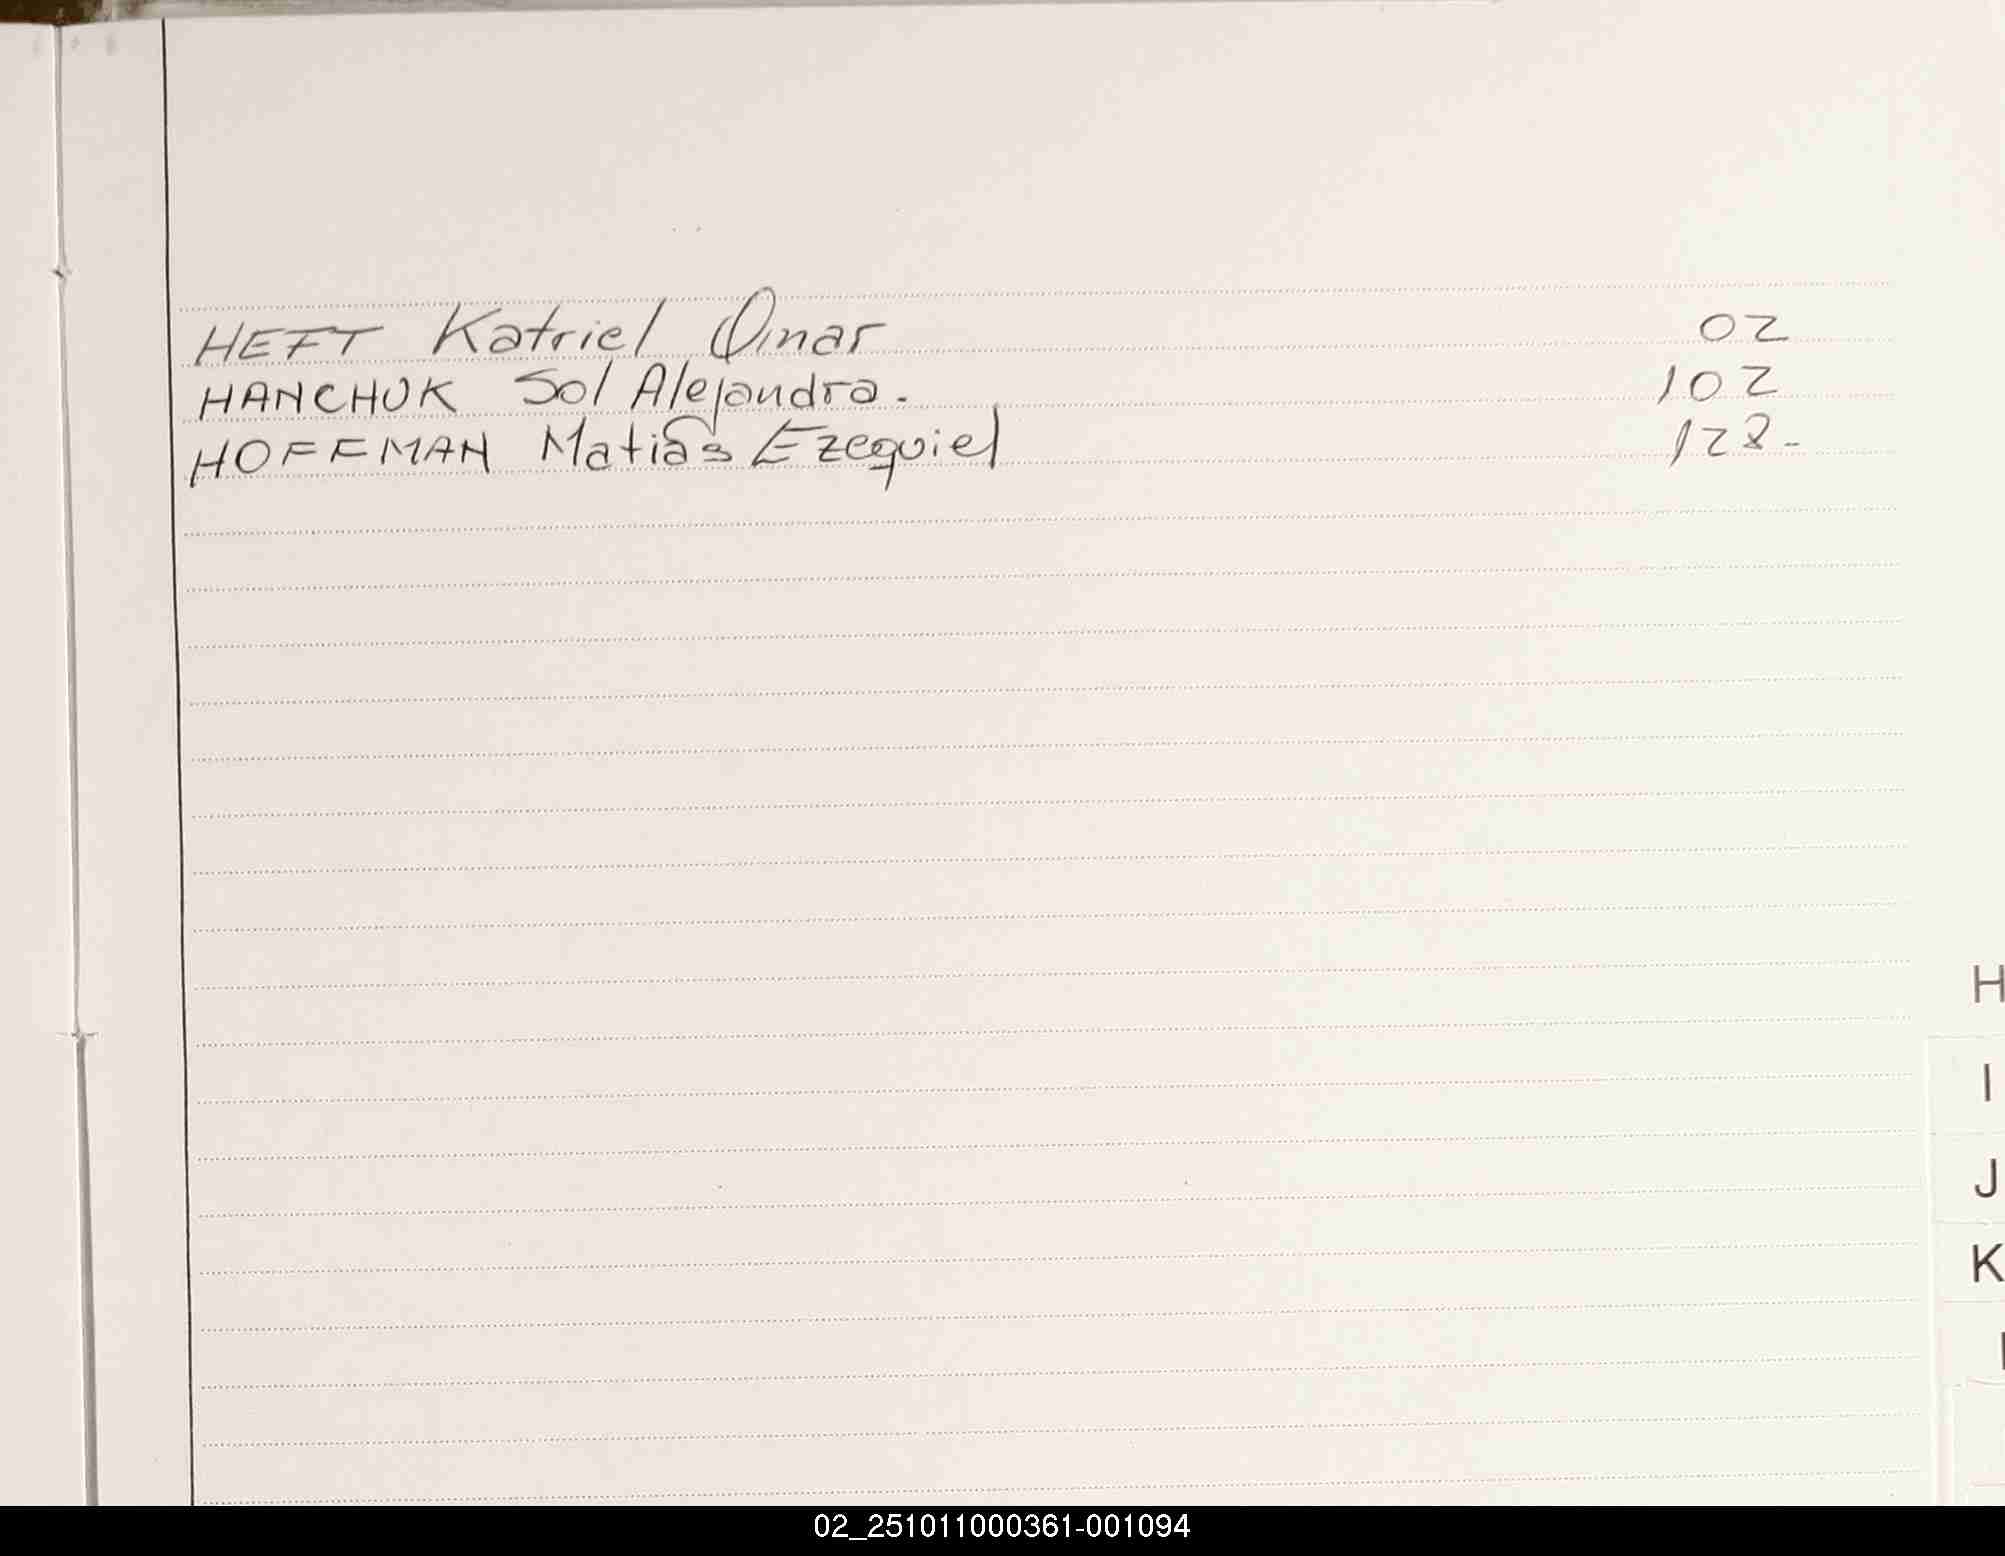 HEFT Katriel Omar 02
HANCHUK Sol Alejandra. 102
HOFFMAN Matias Ezequiel 128-
H
I
J
K
02_251011000361-001094